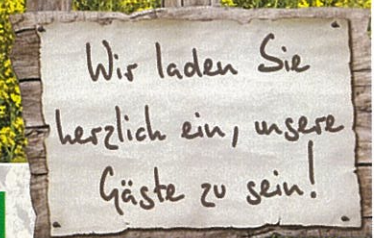 Wir laden Sie
herzlich ein, unsere
Gäste zu sein!